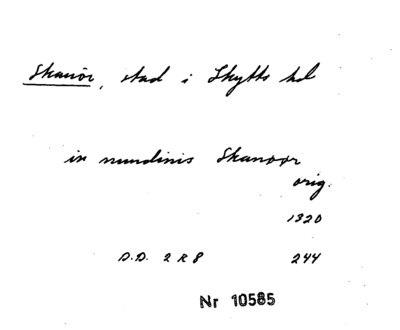 Skanör, stad i Skytts hd
in nundinis Skanøør
orig.
1320
D.D. 2 R 8 244
Nr 10585